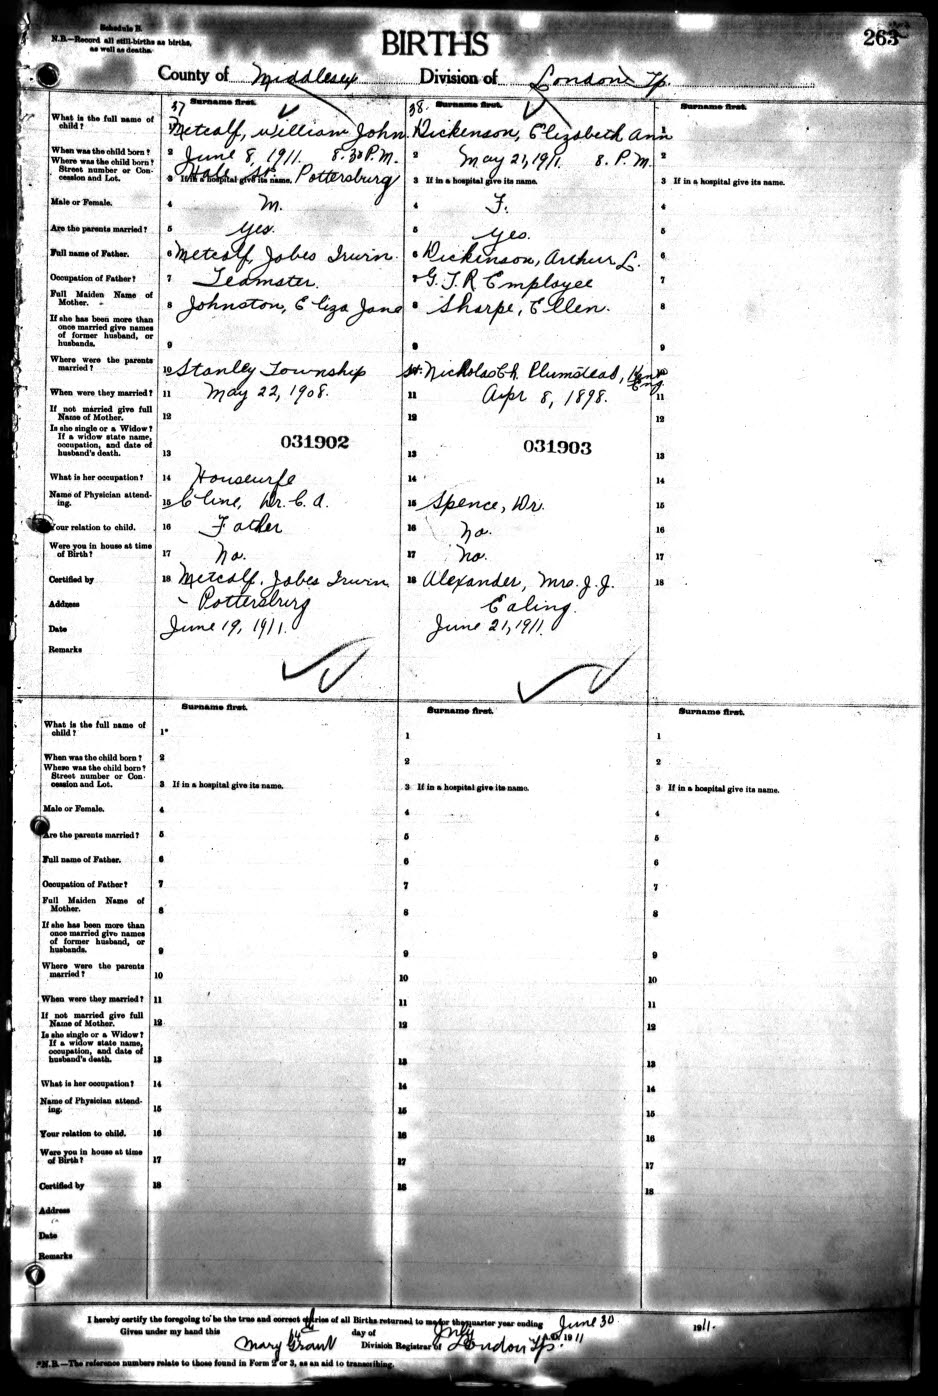 Schedule B.
N.B.—Record all still-births as births,
as well as deaths.
BIRTHS
263
County of Middlesex Division of London Tp.
37 Surname first.
38. Surname first.
Surname first.
What is the full name of child? 1 Metcalf, William John. 1 Dickenson, Elizabeth Ann 1
When was the child born? 2 June 8, 1911. 8.30 P.M. 2 May 21, 1911. 8. P.M. 2
Where was the child born?
Street number or Concession and Lot. 3 If in a hospital give its name. Hale St. Pottersburg 3 If in a hospital give its name. 3 If in a hospital give its name.
Male or Female. 4 M. 4 F. 4
Are the parents married? 5 Yes. 5 Yes. 5
Full name of Father. 6 Metcalf, Jobes Irwin. 6 Dickinson, Arthur L. 6
Occupation of Father? 7 Teamster. 7 G.T.R Employee 7
Full Maiden Name of Mother. 8 Johnston, Eliza Jane 8 Sharpe, Ellen. 8
If she has been more than once married give names of former husband, or husbands. 9 9 9
Where were the parents married? 10 Stanley Township St. Nicholas Ch. Plumstead, Kent Eng.
When were they married? 11 May 22, 1908. 11 Apr 8, 1898. 11
If not married give full Name of Mother. 12 12 12
Is she single or a Widow? If a widow state name, occupation, and date of husband's death. 13 031902 13 031903 13
What is her occupation? 14 Housewife 14 14
Name of Physician attending. 15 Cline, Dr. C. A. 15 Spence, Dr. 15
Your relation to child. 16 Father 16 No. 16
Were you in house at time of Birth? 17 No. 17 No. 17
Certified by 18 Metcalf, Jobes Irwin 18 Alexander, Mrs. J. J. 18
Address Pottersburg Ealing.
Date June 19, 1911. June 21, 1911.
Remarks
Surname first. Surname first. Surname first.
What is the full name of child? 1* 1 1
When was the child born? 2 2 2
Where was the child born?
Street number or Concession and Lot. 3 If in a hospital give its name. 3 If in a hospital give its name. 3 If in a hospital give its name.
Male or Female. 4 4 4
Are the parents married? 5 5 5
Full name of Father. 6 6 6
Occupation of Father? 7 7 7
Full Maiden Name of Mother. 8 8 8
If she has been more than once married give names of former husband, or husbands. 9 9 9
Where were the parents married? 10 10 10
When were they married? 11 11 11
If not married give full Name of Mother. 12 12 12
Is she single or a Widow? If a widow state name, occupation, and date of husband's death. 13 13 13
What is her occupation? 14 14 14
Name of Physician attending. 15 15 15
Your relation to child. 16 16 16
Were you in house at time of Birth? 17 17 17
Certified by 18 18 18
Address
Date
Remarks
I hereby certify the foregoing to be the true and correct entries of all Births returned to me for the quarter year ending June 30 1911.
Given under my hand this 14th day of July A.D. 1911
Mary Grant Division Registrar of London Tp.
*N.B.—The reference numbers relate to those found in Form 2 or 3, as an aid to transcribing.